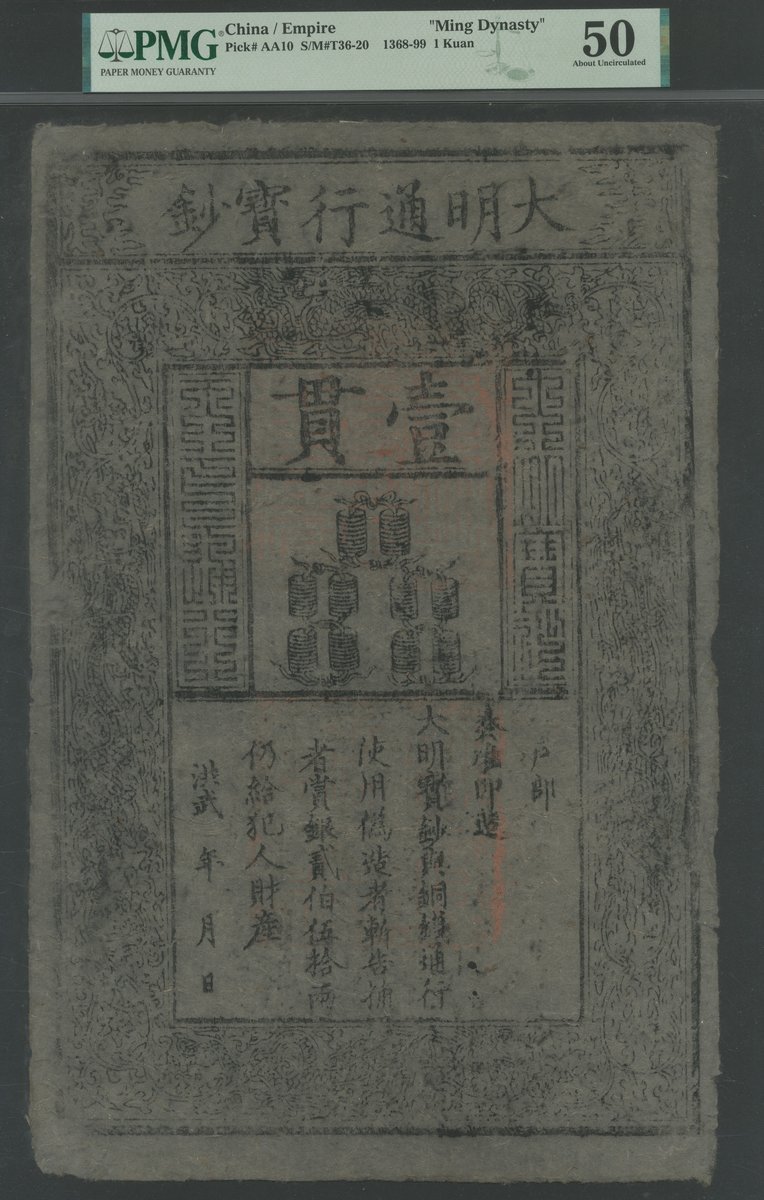 PMG
PAPER MONEY GUARANTY
China / Empire "Ming Dynasty"
Pick# AA10 S/M#T36-20 1368-99 1 Kuan
50
About Uncirculated
大明通行寶鈔
壹貫
大明寶鈔
天下通行
戶部
奏准印造
大明寶鈔與銅錢通行
使用僞造者斬告捕
者賞銀貳伯伍拾兩
仍給犯人財產
洪武 年 月 日